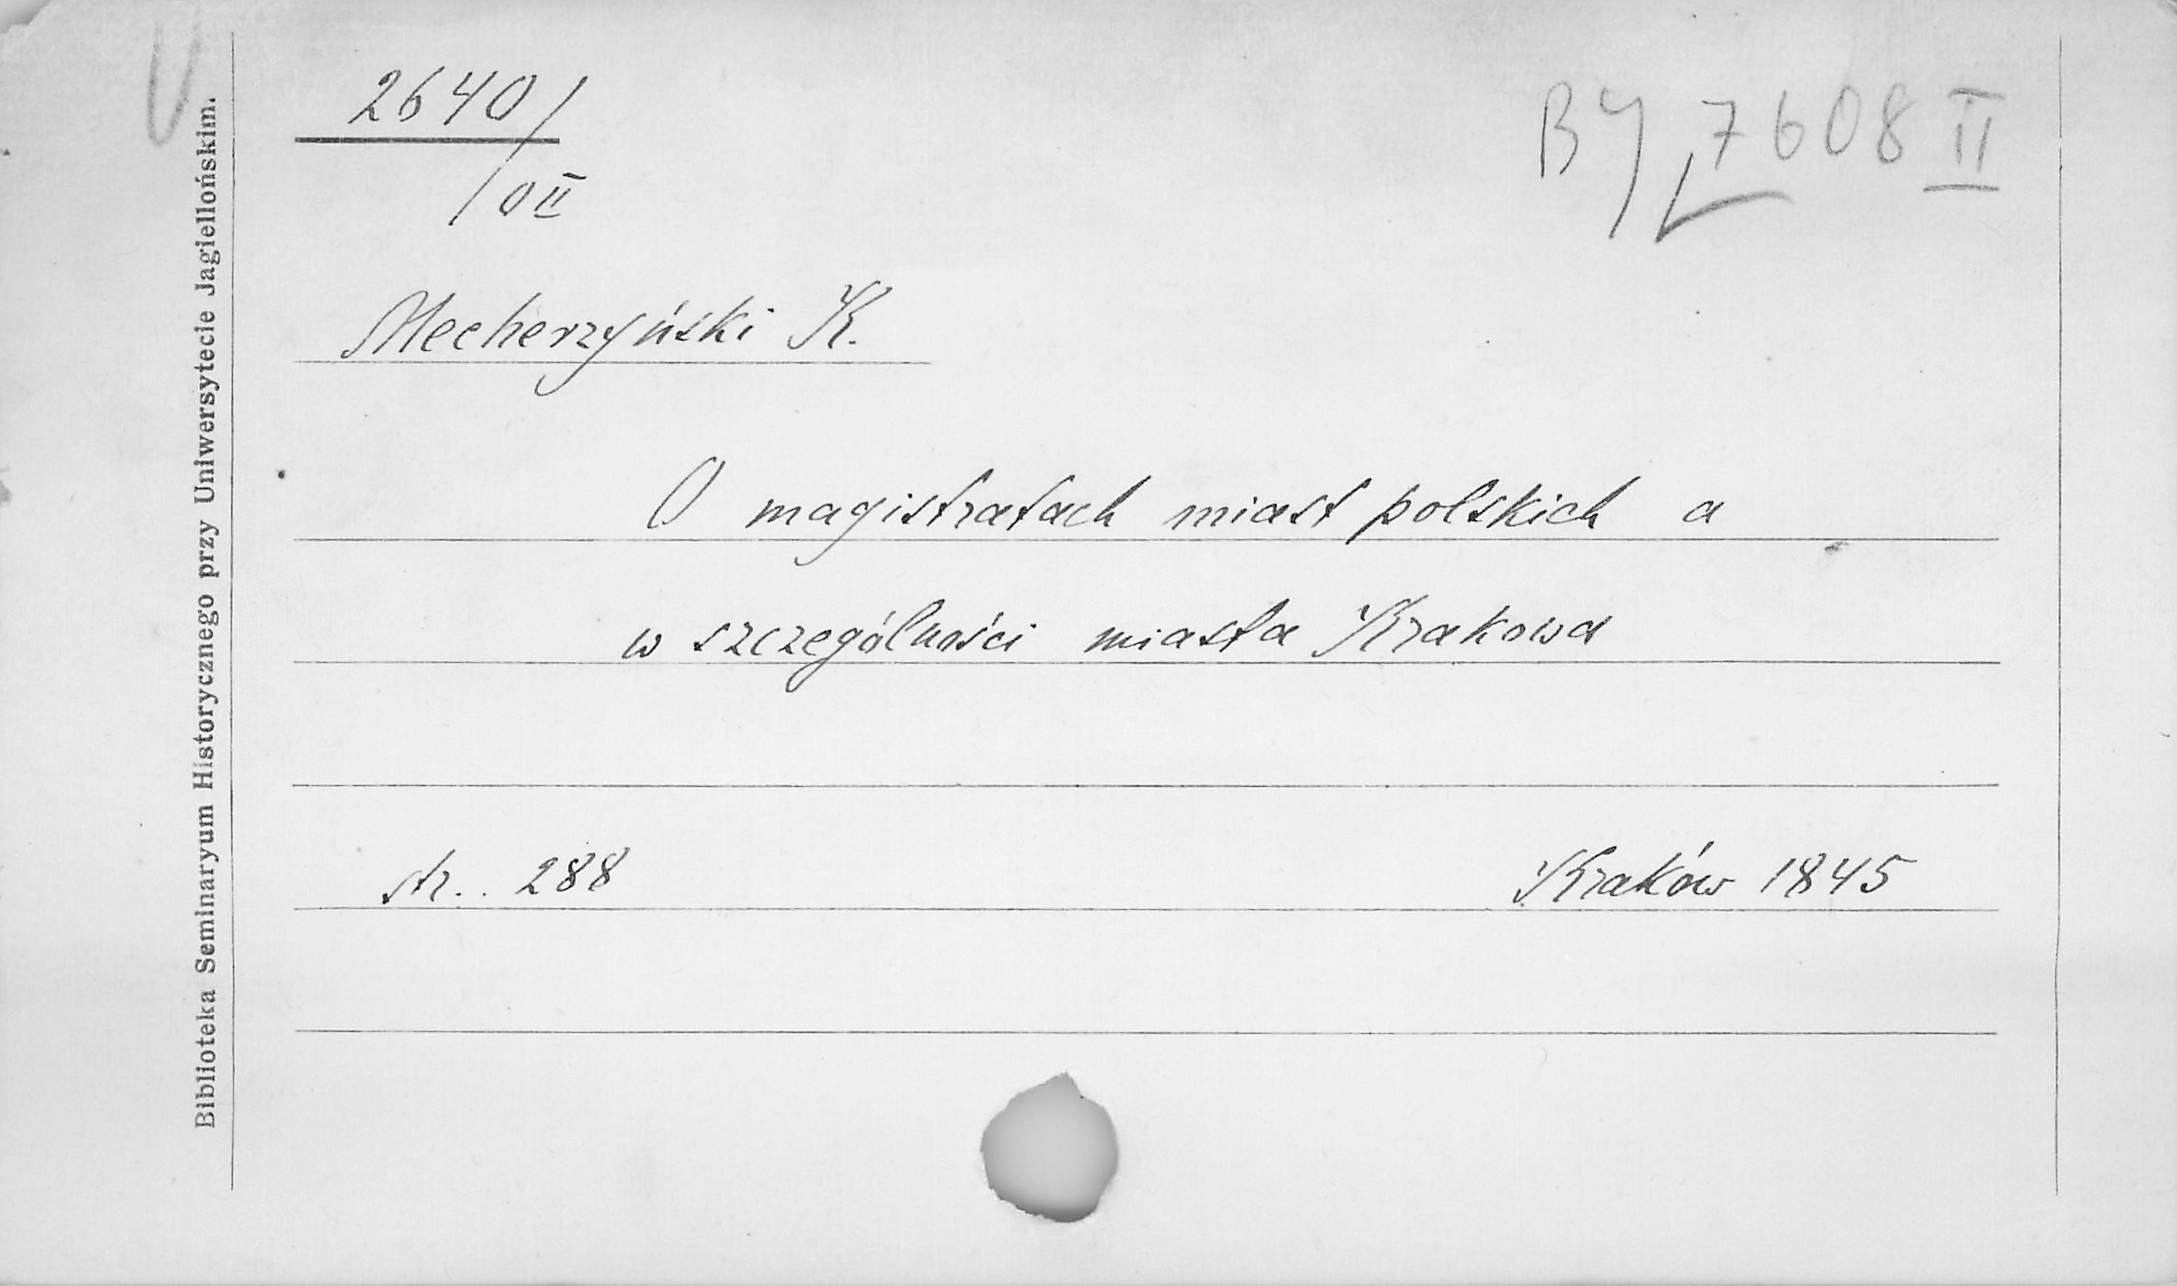 2640/
/0II
BJ 7608 II
Mecherzyński K.
O magistratach miast polskich a
w szczególności miasta Krakowa
str.. 288 Kraków 1845
Biblioteka Seminaryum Historycznego przy Uniwersytecie Jagiellońskim.